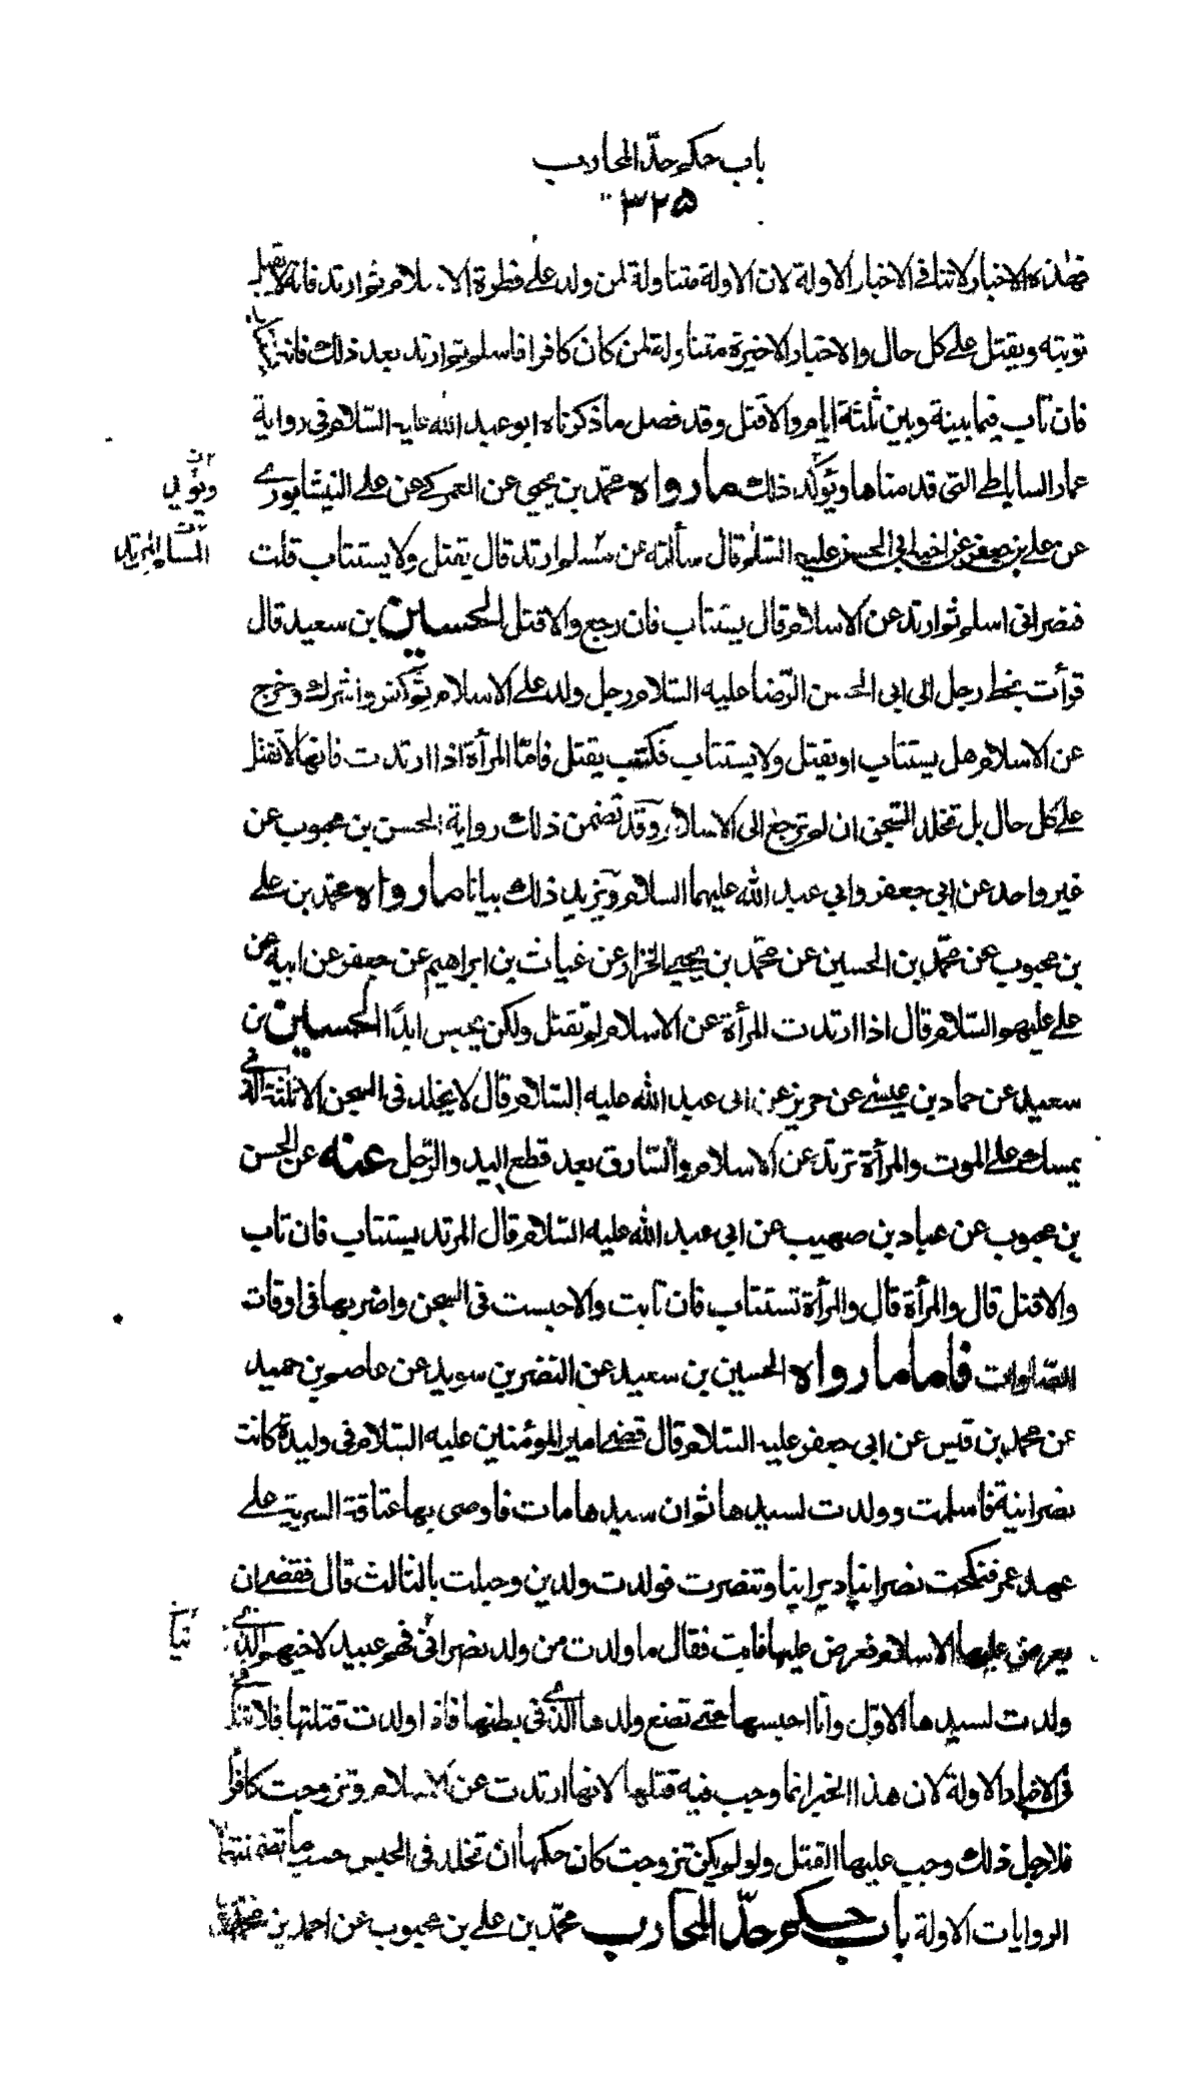 باب حكم حدّ المحارب
٣٢٥
فهذه الاخبار لاتنافى الاخبار الاولة لان الاولة متناولة لمن ولد على فطرة الاسلام ثم ارتد فانه لا تقبل
توبته ويقتل على كل حال والاخبار الاخيرة متناولة لمن كان كافرا فاسلم ثم ارتد بعد ذلك فانه يستتاب
فان تاب فيما بينه وبين ثلثة ايام والا قتل وقد فصل ما ذكرناه ابو عبد الله عليه السلام فى رواية
عمار الساباطى التى قدمناها ويؤكد ذلك ما رواه محمّد بن يحيى عن العمركى عن على النيشابورى
عن على بن جعفر عن اخيه ابى الحسن عليه السلم قال سألته عن مسلم ارتد قال يقتل ولا يستتاب قلت
فنصرانى اسلم ثم ارتد عن الاسلام قال يستتاب فان رجع والا قتل الحسين بن سعيد قال
قرأت بخط رجل الى ابى الحسن الرّضا عليه السلام رجل ولد على الاسلام ثم كفر واشرك وخرج
عن الاسلام هل يستتاب او يقتل ولا يستتاب فكتب يقتل فامّا المرأة اذا ارتدت فانها لا تقتل
على كل حال بل تخلد السجن ان لم ترجع الى الاسلام وقد تضمن ذلك رواية الحسن بن محبوب عن
غير واحد عن ابي جعفر وابي عبد الله عليهما السلام ويزيد ذلك بيانا ما رواه محمّد بن على
بن محبوب عن محمّد بن الحسين عن محمّد بن يحيى الخزاز عن غياث بن ابراهيم عن جعفر عن ابيه عن
على عليهم السّلام قال اذا ارتدت المرأة عن الاسلام لم تقتل ولكن يحبس ابدًا الحسين بن
سعيد عن حماد بن عيسى عن حريز عن ابى عبد الله عليه السلام قال لا يخلد فى السجن الا ثلثة الذى
يمسك على الموت والمرأة ترتد عن الاسلام والسّارق بعد قطع اليد والرّجل عنه عن الحسن
بن محبوب عن عباد بن صهيب عن ابي عبد الله عليه السّلام قال المرتد يستتاب فان تاب
والا قتل قال والمرأة قال والمرأة تستتاب فان تابت والا حبست فى السجن واضر بها فى اوقات
الصّلوات فاما ما رواه الحسين بن سعيد عن النضر بن سويد عن عاصم بن حميد
عن محمد بن قيس عن ابى جعفر عليه السّلام قال قضى امير المؤمنين عليه السّلام فى وليدة كانت
نصرانية فاسلمت وولدت لسيدها ثم ان سيدها مات فاوصى بها عتاقة السرية على
عهد عمر فنكحت نصرانيا ديرانيا وتنصرت فولدت ولدين وحبلت بالثالث قال فقضى ان
يعرض عليها الاسلام فعرض عليها فابت فقال ما ولدت من ولد نصرانى فهم عبيد لاخيهم الذى
ولدت لسيدها الاوّل وانا احبسها حتى تضع ولدها الذى فى بطنها فاذا ولدت قتلتها فلا تنا
فى الاخبار الاولة لان هذا الخبر انما وجب فيه قتلها لانها ارتدت عن الاسلام وتزوجت كافرا
فلاجل ذلك وجب عليها القتل ولو لم يكن تزوجت كان حكمها ان تخلد فى الحبس حسب ما تضمنته
الروايات الاولة باب حكم حدّ المحارب محمّد بن على بن محبوب عن احمد بن محمد